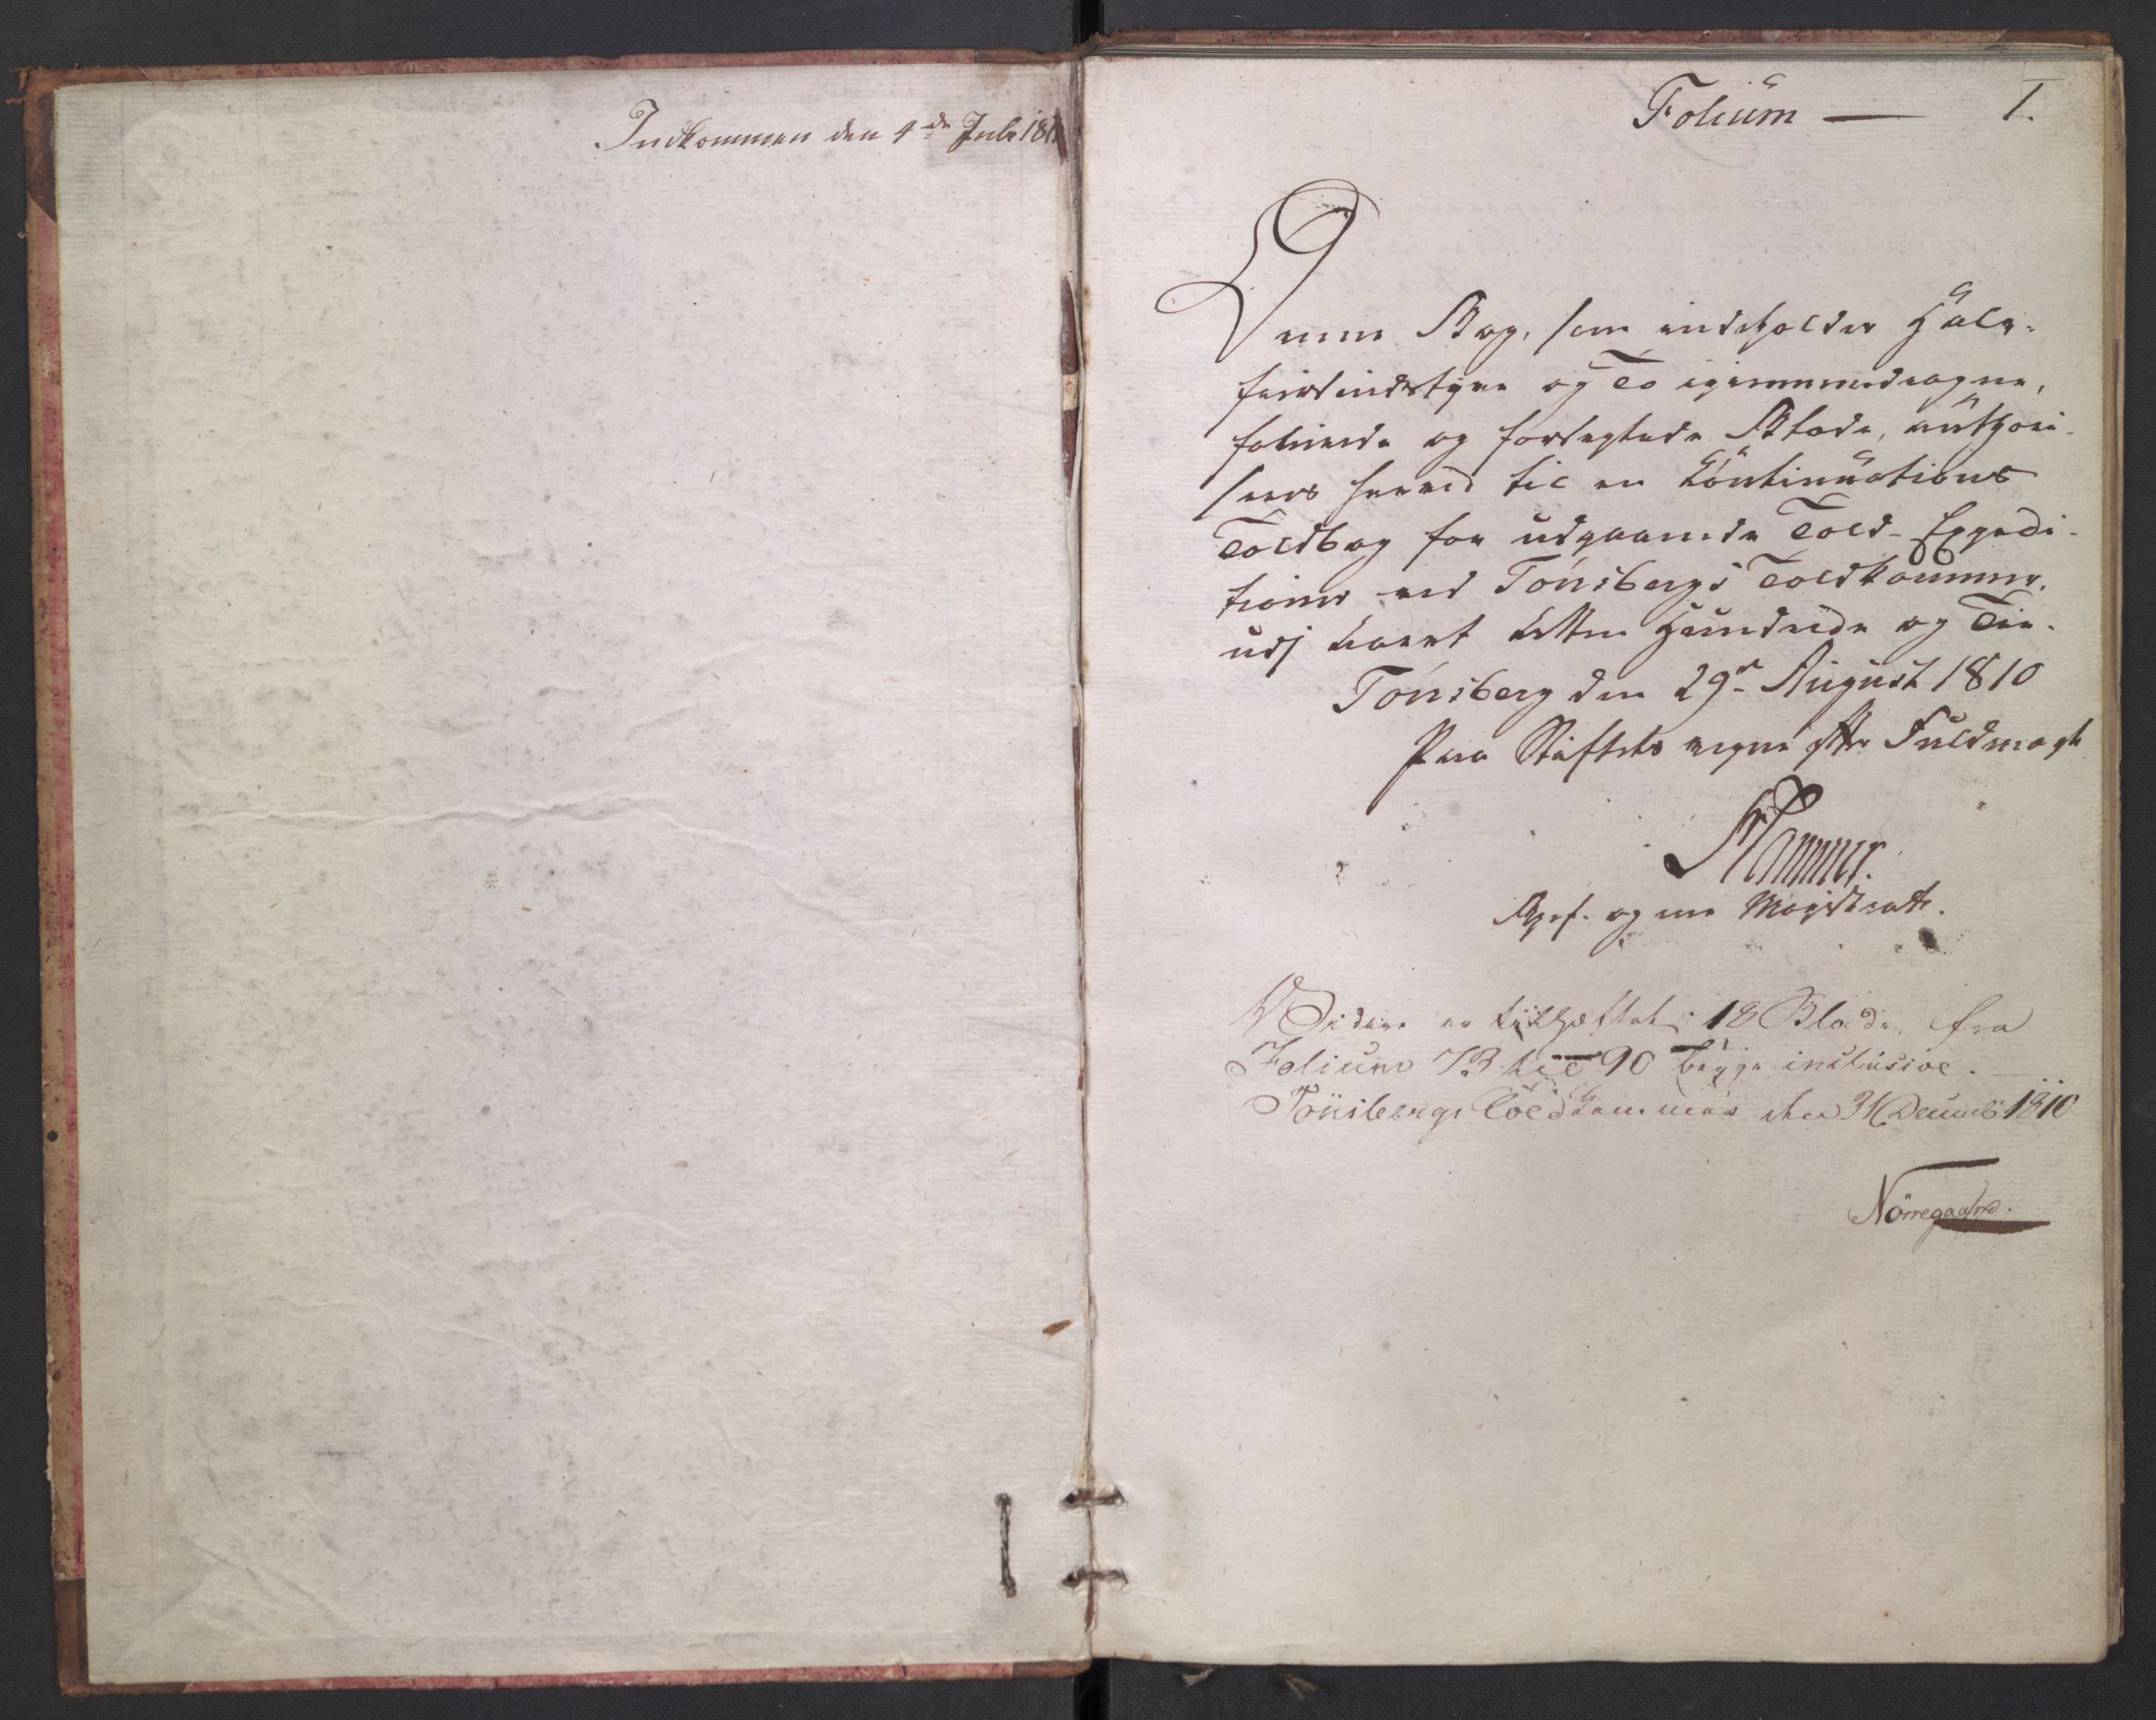 Indkommen den 4de Julii 181
Folium — 1.
Denne Bog, som indeholder Halv-
fierdindstyve og To igiennemdragne,
folierede og forseglede Blade, authori-
seres herved til en Continuations
Toldbog for udgaaende Told-Expedi-
tioner ved Tönsbergs Toldkammer,
udj Aaret Atten Hundrede og Tie.
Tönsberg den 29de August 1810
Paa Stiftets vegne efter Fuldmagt
Hammer.
Byef. og ene Magistrat.
Videre er tilhæftet 18 Blade, fra
Folium 73 til 90 begge inclusive.
Tönsbergs Toldkammer den 31 Decemb 1810
Nörregaard.